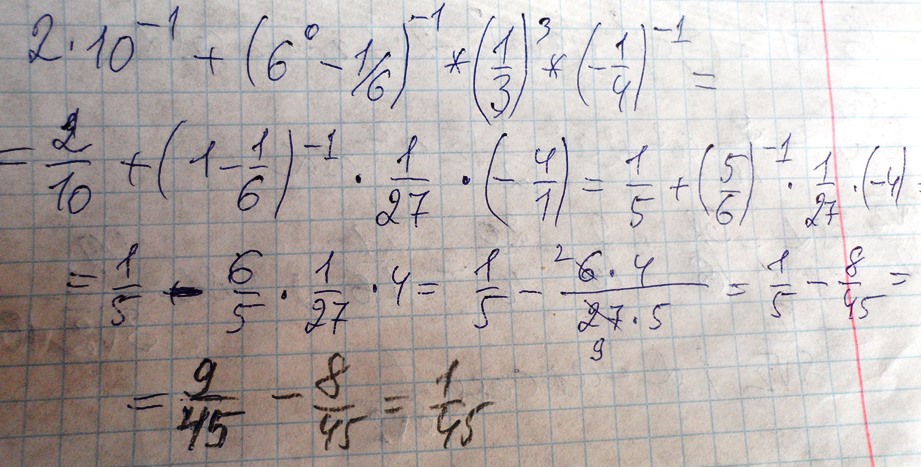 2·10⁻¹ + (6⁰ - 1/6)⁻¹ * (1/3)³ * (-1/4)⁻¹ =
= 2/10 + (1 - 1/6)⁻¹ · 1/27 · (-4/1) = 1/5 + (5/6)⁻¹ · 1/27 · (-4) =
= 1/5 - 6/5 · 1/27 · 4 = 1/5 - ²6·4/27·5 9 = 1/5 - 8/45 =
= 9/45 - 8/45 = 1/45